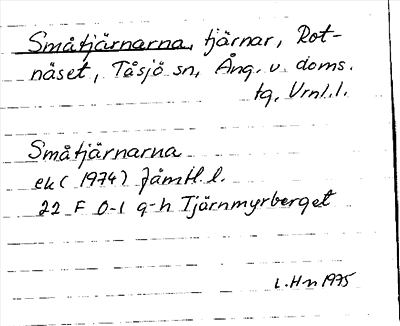 Småtjärnarna, tjärnar, Rot-
näset, Tåsjö sn, Ång. v. doms.
tg, Vrnl.l.
Småtjärnarna
ek (1974) Jämtl. l.
22 F 0-1 g-h Tjärnmyrberget
L. Hn 1975